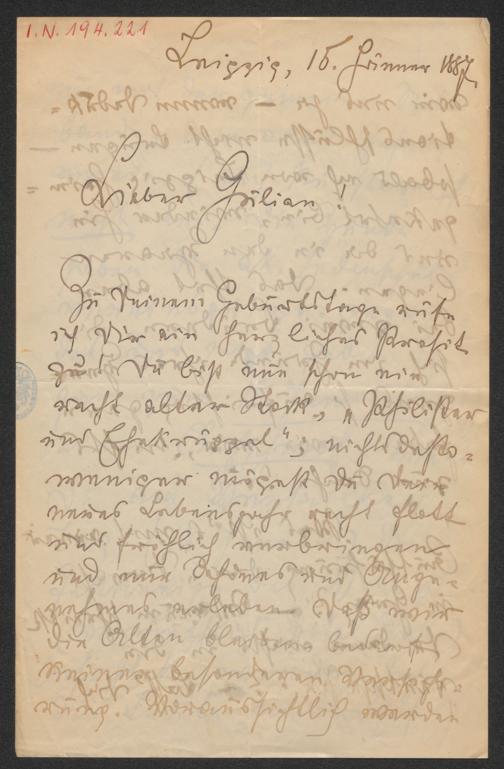 I.N. 194.221
Leipzig, 16. Jänner 1887.
Lieber Gilian!
Zu Deinem Geburtstage rufe
ich Dir ein herzliches Prosit
zu! Du bist nun schon ein
recht alter Stock, „Philister
und Ehekrüppel“; nichtsdesto=
weniger mögest Du Dein
neues Lebensjahr recht flott
und fröhlich verbringen
und nur Schönes und Ange=
nehmes erleben. Daß wir
die Alten bleiben, bedarf
keiner besonderen Versiche=
rung. Voraussichtlich werden